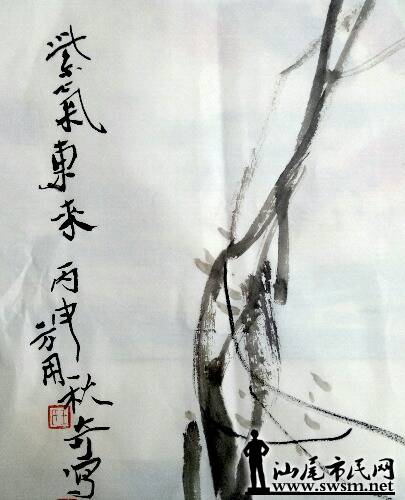 紫氣東来丙申秋奇写
汕尾市民网
www.swsm.net